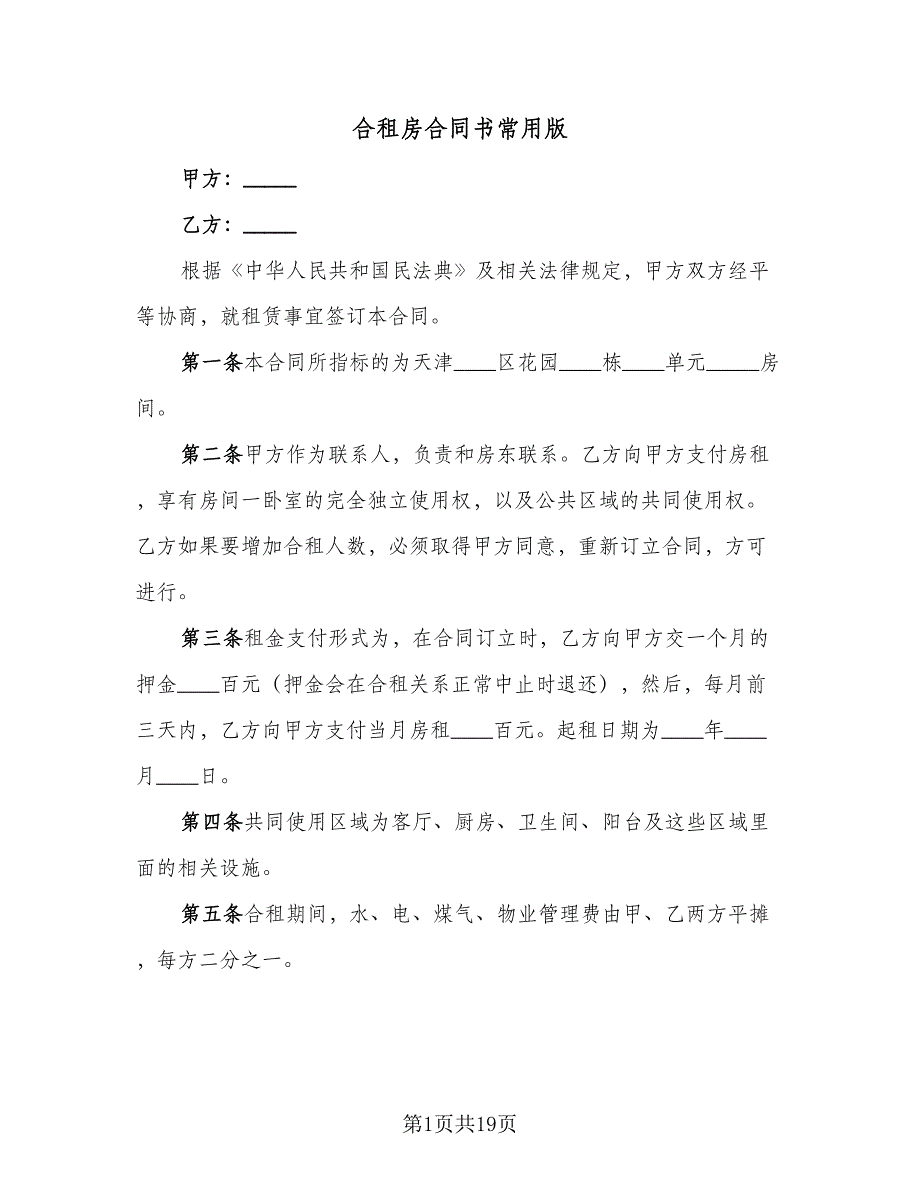 合租房合同书常用版
甲方：_____
乙方：_____
根据《中华人民共和国民法典》及相关法律规定，甲方双方经平
等协商，就租赁事宜签订本合同。
第一条本合同所指标的为天津____区花园____栋____单元_____房
间。
第二条甲方作为联系人，负责和房东联系。乙方向甲方支付房租
，享有房间一卧室的完全独立使用权，以及公共区域的共同使用权。
乙方如果要增加合租人数，必须取得甲方同意，重新订立合同，方可
进行。
第三条租金支付形式为，在合同订立时，乙方向甲方交一个月的
押金____百元（押金会在合租关系正常中止时退还），然后，每月前
三天内，乙方向甲方支付当月房租____百元。起租日期为____年____
月____日。
第四条共同使用区域为客厅、厨房、卫生间、阳台及这些区域里
面的相关设施。
第五条合租期间，水、电、煤气、物业管理费由甲、乙两方平摊
，每方二分之一。
第1页共19页